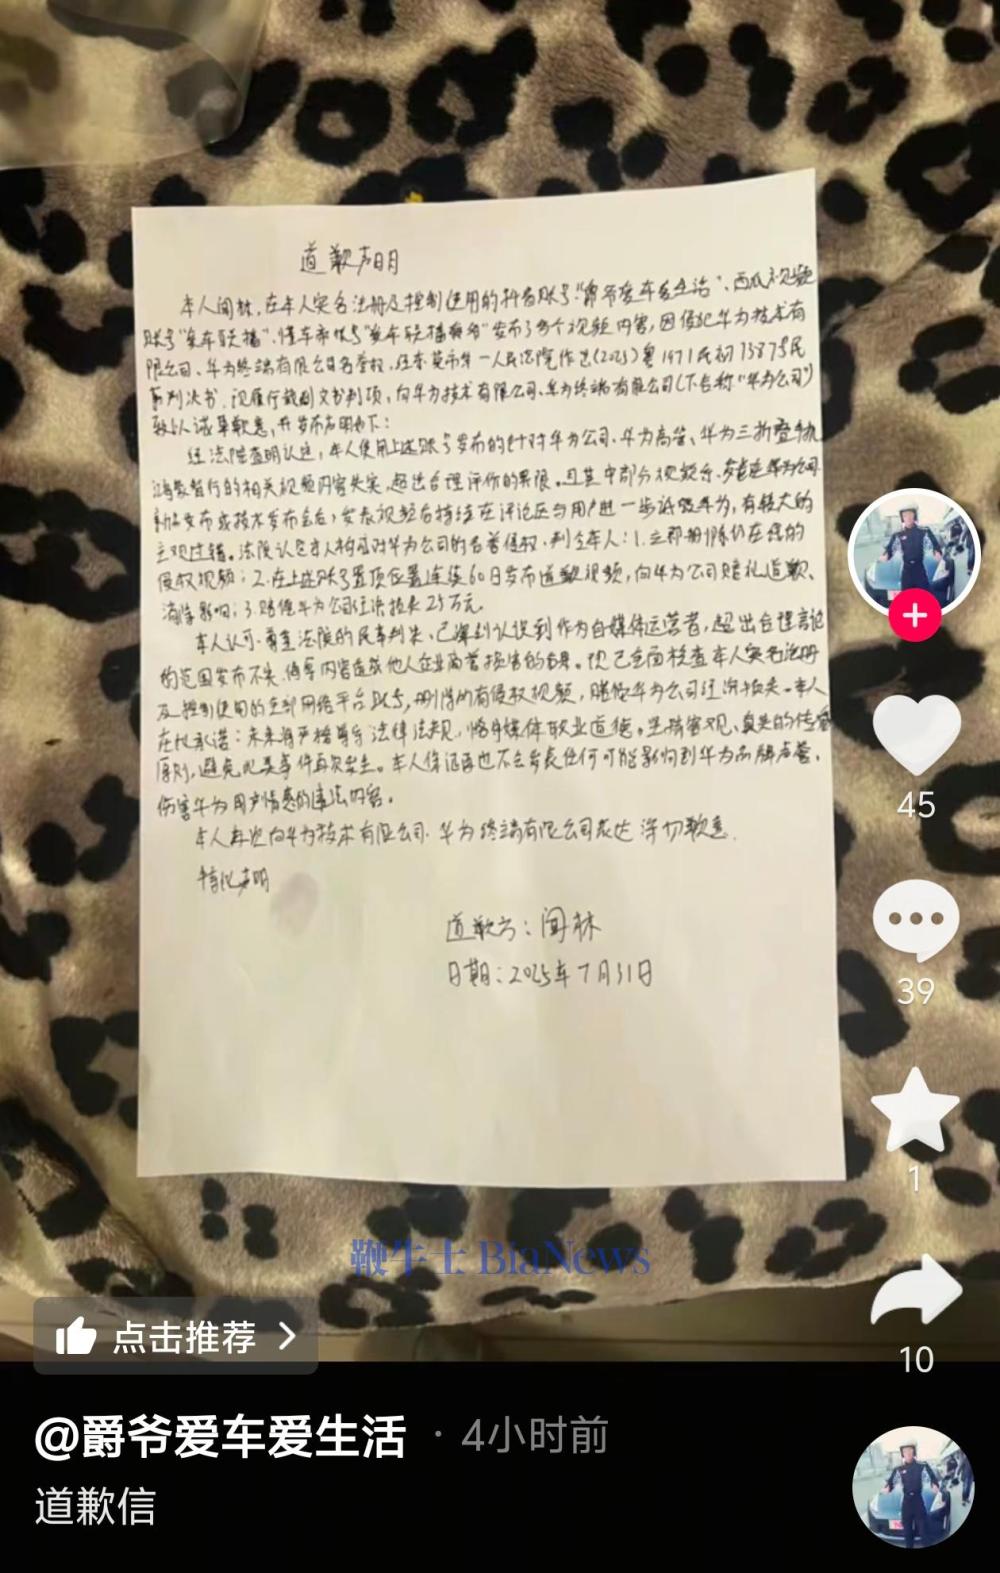 道歉声明
本人闻林，在本人实名注册及控制使用的抖音账号“爵爷爱车爱生活”、西瓜视频
账号“爱车联播”、懂车帝账号“爱车联播”发布了多个视频内容，因侵犯华为技术有
限公司、华为终端有限公司名誉权，经东莞市第一人民法院作出(2025)粤1971民初
判决书，现履行裁判文书判项，向华为技术有限公司、华为终端有限公司(下合称“华为公司”)
致以诚挚歉意，并发布声明如下：
经法院查明认定，本人使用上述账号发布的针对华为公司、华为高管、华为三折叠
的相关视频内容失实，超出合理评价的界限。且其中部分视频
发布或技术发布会后，发表视频后持续在评论区与用户进一步诋毁华为，有较大的
主观过错。法院认定本人构成对华为公司的名誉侵权，判令本人：1.立即删除仍在线的
侵权视频；2.在上述账号置顶位置连续60日发布道歉视频，向华为公司赔礼道歉、
消除影响；3.赔偿华为公司经济损失25万元。
本人认可、尊重法院的民事判决，已深刻认识到作为自媒体运营者，超出合理言论
的范围发布不实、侮辱内容造成他人企业商誉损害的后果。现已全面核查本人实名注册
及控制使用的全部网络平台账号，删除所有侵权视频，赔偿华为公司经济损失。本人
在此承诺：未来将严格遵守法律法规，恪守媒体职业道德。坚持客观、真实的传播
原则，避免此类事件再次发生。本人保证再也不会发表任何可能影响到华为品牌声誉，
伤害华为用户情感的违法内容。
本人再次向华为技术有限公司、华为终端有限公司表达深切歉意。
特此声明
道歉方：闻林
日期：2025年7月31日
45
39
1
10
鞭牛士 BiaNews
点击推荐
@爵爷爱车爱生活 · 4小时前
道歉信